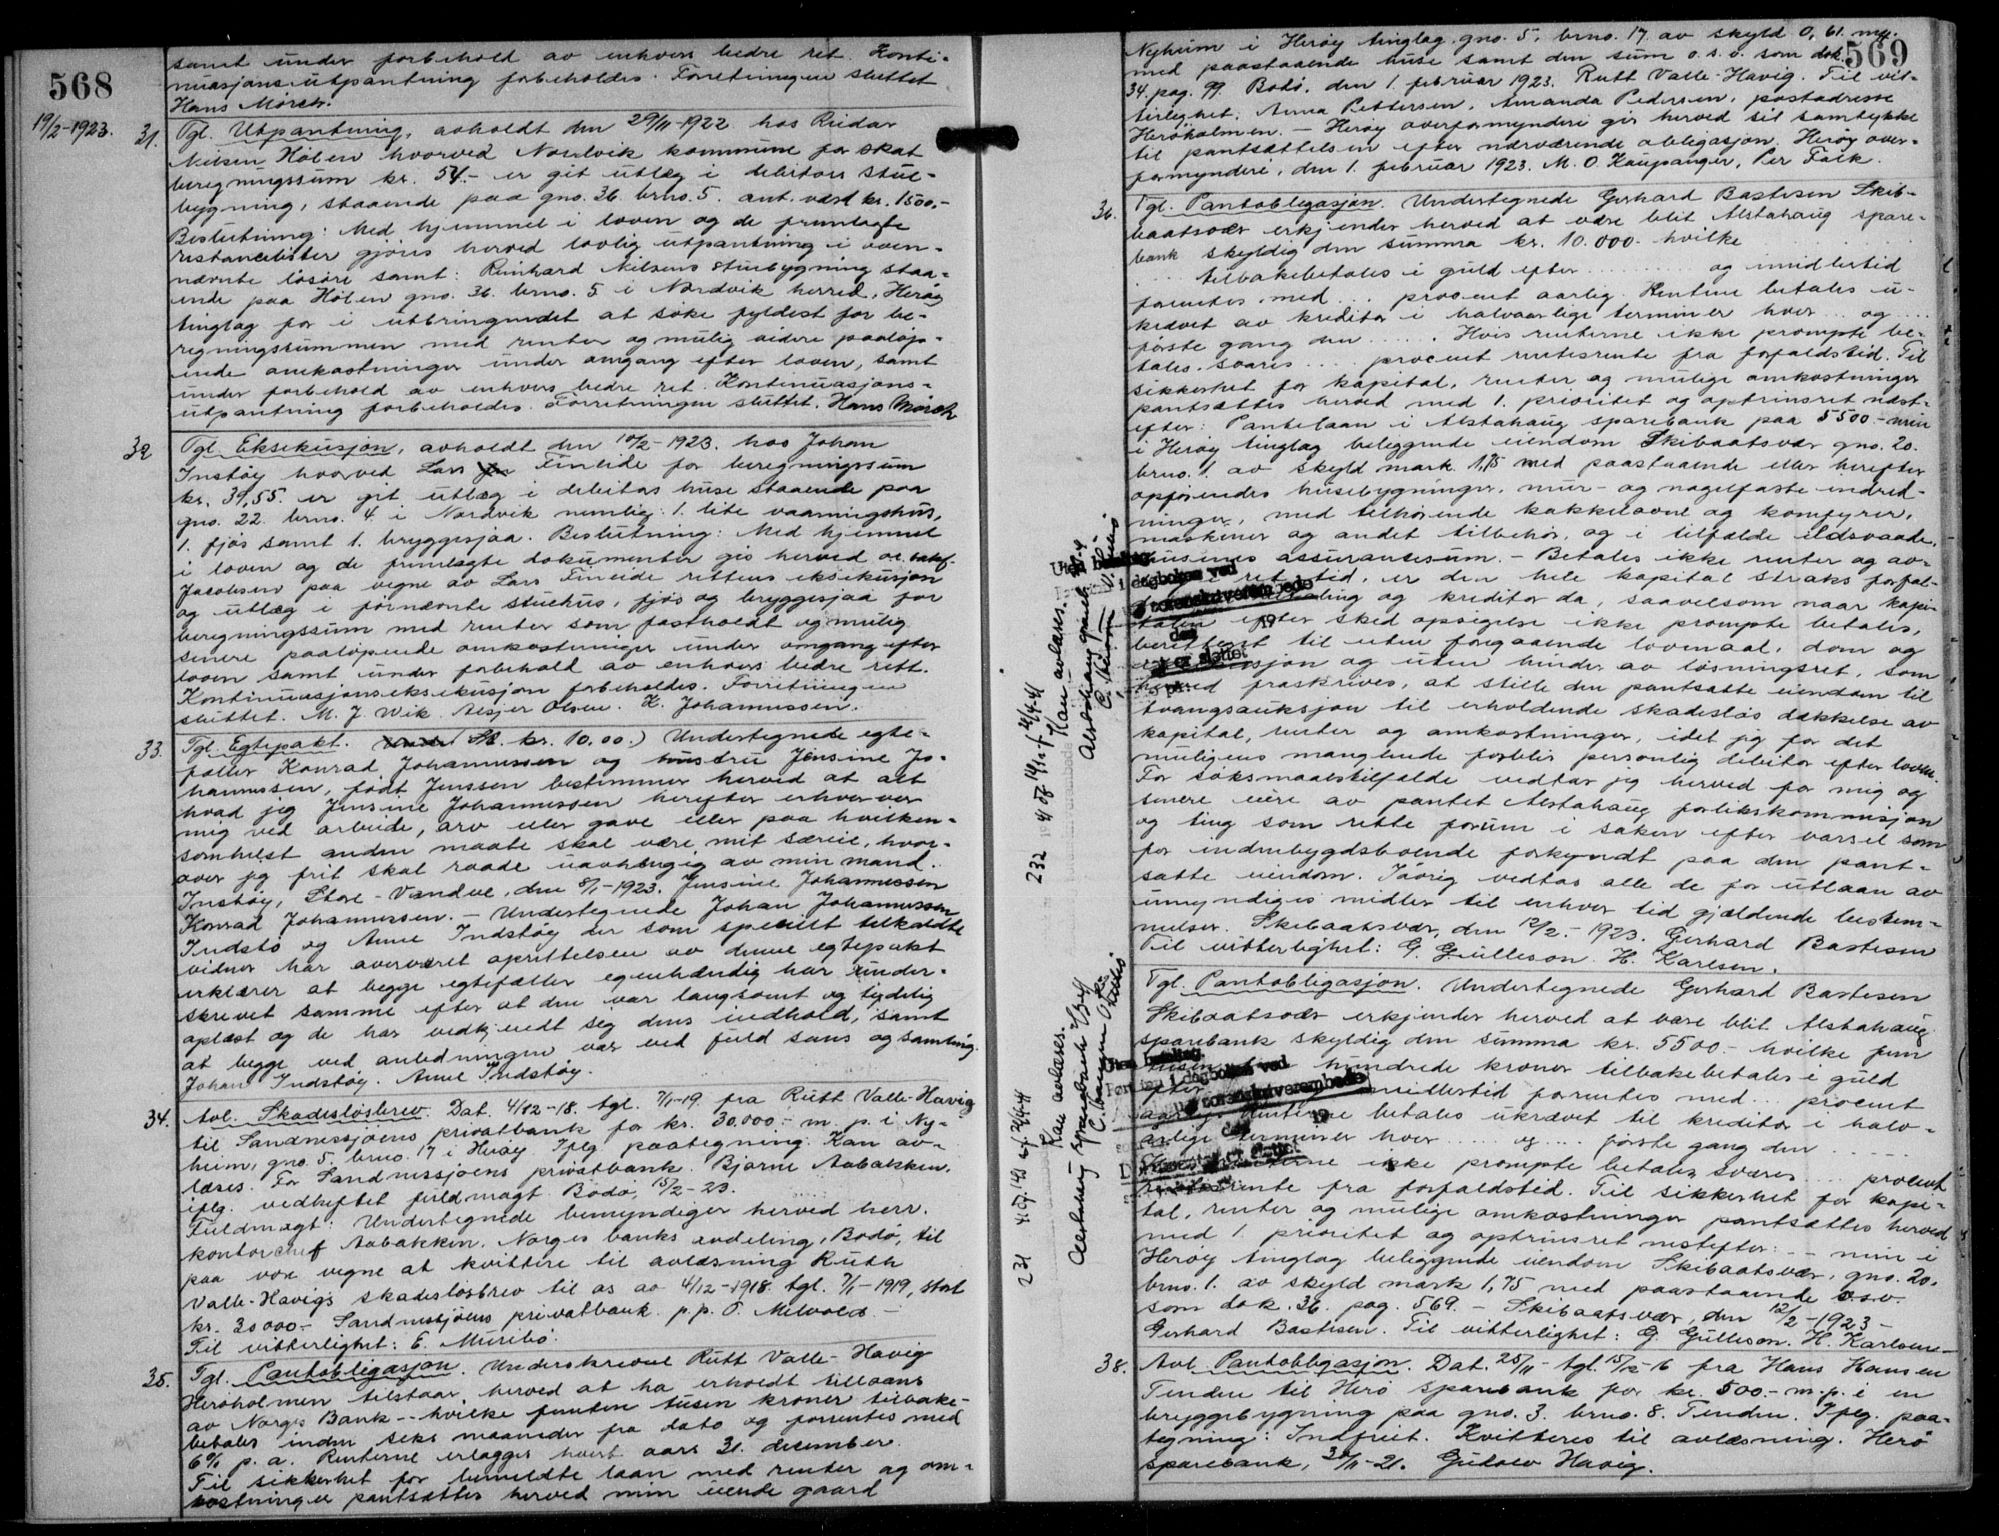 568
samt under forbehold av enhvers bedre ret. Konti-
nuasjonsutpantning forbeholdes. Forretningen sluttet
Hans Mörch.
19/2-1923.
31. Tgl. Utpantning, avholdt den 29/11-1922 hos Reidar
Nilsen Hölen hvorved Nordvik kommune for skat
beregningssum kr. 54.- er git utlæg i debitors stue-
bygning, staaende paa gno. 36 brno. 5. ant. værd kr. 1500.-
Beslutning: Med hjemmel i loven og de fremlagte
restancelister gjöres herved lovlig utpantning i oven-
nævnte lösöre samt: Reinhard Nilsens stuebygning staa-
ende paa Hölen gno. 36. brno. 5 i Nordvik herred, Heröy
tinglag for i utbringendet at söke fyldest for be-
regningssummen med renter og mulig videre paalöp-
ende omkostninger under omgang efter loven, samt
under forbehold av enhvers bedre ret. Kontinuasjons-
utpantning forbeholdes. Forretningen sluttet. Hans Mörch
32 Tgl. Eksekusjon, avholdt den 10/2-1923. hos Johan
Instöy hvorved Lars Fineide for beregningssum
kr. 39,55. er git utlæg i debitors huse staaende paa
gno. 22. brno. 4. i Nordvik nemlig: 1. lite vaaningshus,
1. fjös samt 1. bryggesjaa. Beslutning: Med hjemmel
i loven og de fremlagte dokumenter gis herved
Jacobsen paa vegne av Lars Fineide rettens eksekusjon
og utlæg i förnævnte stuehus, fjös og bryggesjaa for
beregningssum med renter som fastholdt og mulig
senere paalöpende omkostninger under omgang efter
loven samt under forbehold av enhvers bedre rett.
Kontinuasjonseksekusjon forbeholdes. Forretningen
sluttet. M. J. Wik. Asjer Olsen. K. Johannessen.
33. Tgl. Egtepakt. (St. kr. 10.00.) Undertegnede egte-
fæller Konrad Johannessen og hustru Jensine Jo-
hannessen, födt Jenssen bestemmer herved at alt
hvad jeg Jensine Johannessen herefter erhverver
mig ved arbeide, arv eller gave eller paa hvilken-
somhelst anden maate skal være mit særeie, hvor-
over jeg frit skal raade uavhengig av min mand.
Instöy, Store-Vandve, den 8/1-1923. Jensine Johannessen
Konrad Johannessen. - Undertegnede Johan Johannessen
Indstö og Anne Indstöy der som specielt tilkaldte
vidner har overværet oprettelsen av denne egtepakt
erklærer at begge egtefæller egenhændig har under-
skrevet samme efter at den var langsomt og tydelig
oplæst og de har vedkjendt sig dens indhold, samt
at begge ved anledningen var ved fuld sans og samling.
Johan Indstöy. Anne Indstöy.
34. Avl. Skadeslösbrev. Dat. 4/12-18. tgl. 7/1-19. fra Rutt Valle-Havig
til Sandnessjöens privatbank for kr. 30.000.- m. p. i Ny-
heim, gno. 5. brno. 17 i Heröy. Iflg. paategning: Kan av-
læses. For Sandnessjöens privatbank. Bjarne Aabakken.
iflg. vedheftet fuldmagt. Bodö, 15/2-23.
Fuldmagt: Undertegnede bemyndiger herved herr.
kontorchef Aabakken, Norges banks avdeling, Bodö, til
paa vore vegne at kvittere til avlæsning Ruth
Valle-Havigs skadeslösbrev til os av 4/12-1918. tgl. 7/1-1919, stort
kr. 30000.- Sandnessjöens privatbank. p.p. O. Metvold -
Til vitterlighet: E. Muribö.
35. Tgl. Pantobligasjon. Underskrevne Rutt Valle-Havig
Heröholmen tilstaar herved at ha erholdt tillaans
av Norges Bank -- hvilke femten tusen kroner tilbake-
betales inden seks maaneder fra dato og forrentes med
6% p. a. Renterne erlægges hvert aars 31. desember.
Til sikkerhet for bemeldte laan med renter og om-
kostninger pantsættes herved min eiende gaard
569
Nyheim i Heröy tinglag, gno. 5, brno. 17 av skyld 0,61. mrk.
med paastaaende huse samt den sum o.s.v. som dok.
34. pag. 99. Bodö, den 1. februar 1923. Rutt Valle-Havig. Til vit-
terlighet. Anna Pettersen, Amanda Pedersen, postadresse
Heröholmen. - Heröy overformynderi gir herved sit samtykke
til pantsættelsen efter nærværende obligasjon. Heröy over-
formynderi, den 1. februar 1923. M. O. Kaupanger, Per Falk.
36. Tgl. Pantobligasjon. Undertegnede Gerhard Bastesen Skib-
baatsvær erkjender herved at være blit Alstahaug spare-
bank skyldig den summa kr. 10.000.- hvilke
... tilbakebetales i guld efter ........ og imidlertid
forrentes med ... procent aarlig. Rentene betales u-
krævet av kreditor i halvaarlige terminer hver ... og ...
förste gang den ..... Hvis renterne ikke prompte be-
tales. svares ... procent rentesrente fra forfaldstid. Til
sikkerhet for kapital, renter og mulige omkostninger
pantsættes herved med 1. prioritet og optrinsret næst-
efter: Pantelaan i Alstahaug sparebank paa 5500.- min
i Heröy tinglag beliggende eiendom Skibaatsvær gno. 20.
brno. 1. av skyld mark 1,75 med paastaaende eller herefter
opförendes husebygninger, mur- og nagelfaste indred-
ninger, med tilhörende kakkelovne og komfyrer,
maskiner og andet tilbehör, og i tilfælde ildsvaade,
husenes assurancesum. - Betales ikke renter og av-
ret tid, er den hele kapital straks forfal-
betaling og kreditor da, saavelsom naar kapi-
talen efter sked opsigelse ikke prompte betales,
berettiget til uten foregaaende lovmaal, dom og
eksekusjon og uten hinder av lösningsret, som
herved fraskrives, at stille den pantsatte eiendom til
tvangsauksjon til erholdende skadeslös dækkelse av
kapital, renter og omkostninger, idet jeg for det
muligens manglende forblir personlig debitor efter loven.
For söksmaalstilfælde vedtar jeg herved for mig og
senere eiere av pantet Alstahaug forlikskommisjon
og ting som rette forum i saken efter varsel som
for indenbygdsboende forkyndt paa den pant-
satte eiendom. Iövrig vedtas alle de for utlaan av
umyndiges midler til enhver tid gjældende bestem-
melser. Skibaatsvær, den 12/2.-1923. Gerhard Bastesen
Til vitterlighet: G. Gülleson. H. Karlsen.
Tgl. Pantobligasjon. Undertegnede Gerhard Bastesen
Skibaatsvær erkjender herved at være blit Alstahaug
sparebank skyldig den summa kr. 5500.- hvilke fem
tusen hundrede kroner tilbakebetales i guld
efter imidlertid forrentes med ... procent
aarlig. Renterne betales ukrævet til kreditor i halv-
aarlige terminer hver .... og .... förste gang den ...
renterne ikke prompte betales svares ... procent
rentesrente fra forfaldstid. Til sikkerhet for kapi-
tal, renter og mulige omkostninger pantsættes herved
med 1. prioritet og optrinsret nestefter: -- min i
Heröy tinglag beliggende eiendom Skibaatsvær, gno. 20.
brno. 1. av skyld mark 1,75 med paastaaende o.s.v.
som dok. 36. pag. 569. - Skibaatsvær, den 12/2-1923 -
Gerhard Bastesen. Til vitterlighet: G. Gülleson. H. Karlsen-
38. Avl. Pantobligasjon. Dat. 25/11- tgl. 15/12-16 fra Hans Hansen
Tenden til Herö sparebank for kr. 500.- m.p. i en
bryggebygning paa gno. 3. brno. 8. Tenden. Iflg. paa-
tegning: Indfriet. Kvitteres til avlæsning. Herö
sparebank, 30/11-21. Gudolv Havig.
232
Kan avlæses.
Uten betaling
i dagboken ved
sorenskriverembede
den 19
231
Kan avlæses.
Uten betaling
i dagboken ved
sorenskriverembede
den 19